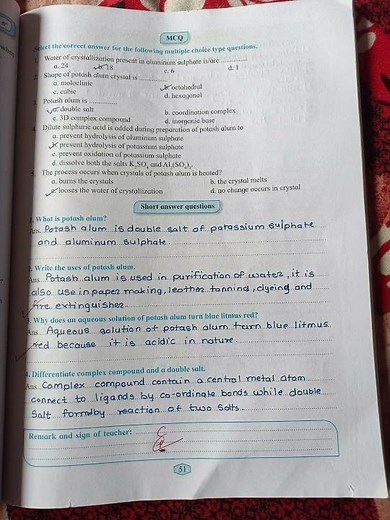 MCQ
Select the correct answer for the following multiple choice type questions.
1. Water of crystallization present in aluminum sulphate is/are ............
a. 24 b. 18 c. 6 d. 1
2. Shape of potash alum crystal is ............
a. moloclinic b. octahedral
c. cubic d. hexagonal
3. Potash alum is ............
a. double salt b. coordination complex
c. 3D complex compound d. inorganic base
4. Dilute sulphuric acid is added during preparation of potash alum to
a. prevent hydrolysis of aluminum sulphate
b. prevent hydrolysis of potassium sulphate
c. prevent oxidation of potassium sulphate
d. dissolve both the salts K₂SO₄ and Al₂(SO₄)₃
5. The process occurs when crystals of potash alum is heated?
a. burns the crystals b. the crystal melts
c. looses the water of crystallization d. no change occurs in crystal
Short answer questions
1. What is potash alum?
Ans. Potash alum is double salt of patassium sulphate
and aluminum sulphate.
2. Write the uses of potash alum.
Ans. Potash alum is used in purification of water, it is
also use in paper making, leather tannind, dyeing and
fire extinguisher.
3. Why does an aqueous solution of potash alum turn blue litmus red?
Ans. Aqueous solution of potash alum turn blue litmus
red because it is acidic in nature.
4. Differentiate complex compound and a double salt.
Ans Complex compound contain a central metal atom
connect to ligands by co-ordinate bonds while double
Salt formdby reaction of two Salts.
Remark and sign of teacher:
51